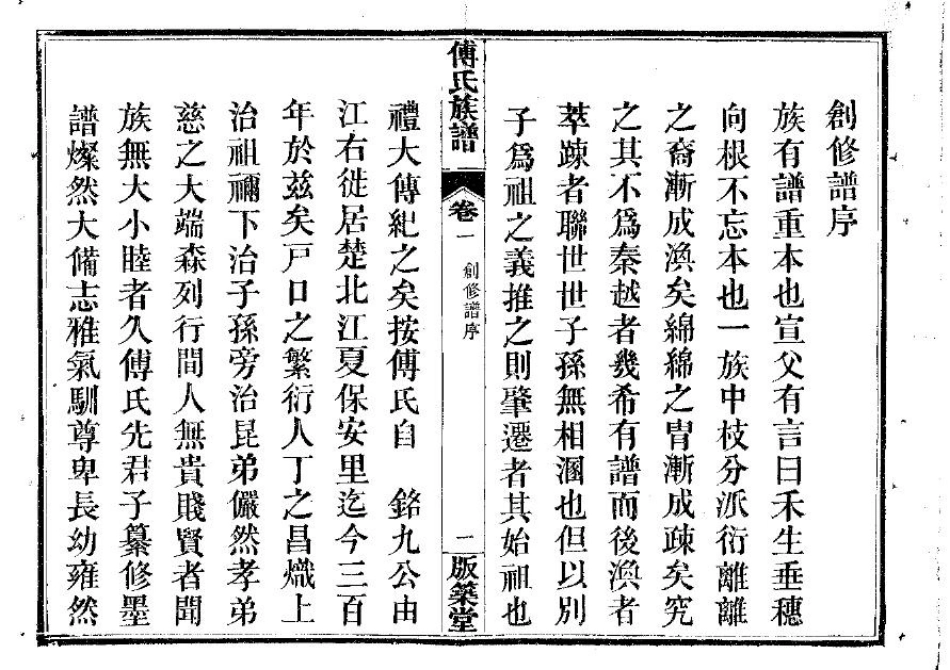 創修譜序
族有譜重本也宣父有言曰禾生垂穗
向根不忘本也一族中枝分派衍離離
之裔漸成渙矣綿綿之胄漸成疎矣究
之其不爲秦越者幾希有譜而後渙者
萃踈者聯世世子孫無相溷也但以別
子爲祖之義推之則肇遷者其始祖也
傅氏族譜
卷一
創修譜序
一
版築堂
禮大傳紀之矣按傅氏自 銘九公由
江右徙居楚北江夏保安里迄今三百
年於茲矣戸口之繁衍人丁之昌熾上
治祖禰下治子孫旁治昆弟儼然孝弟
慈之大端森列行間人無貴賤賢者聞
族無大小睦者久傅氏先君子纂修墨
譜燦然大備志雅氣馴尊卑長幼雍然